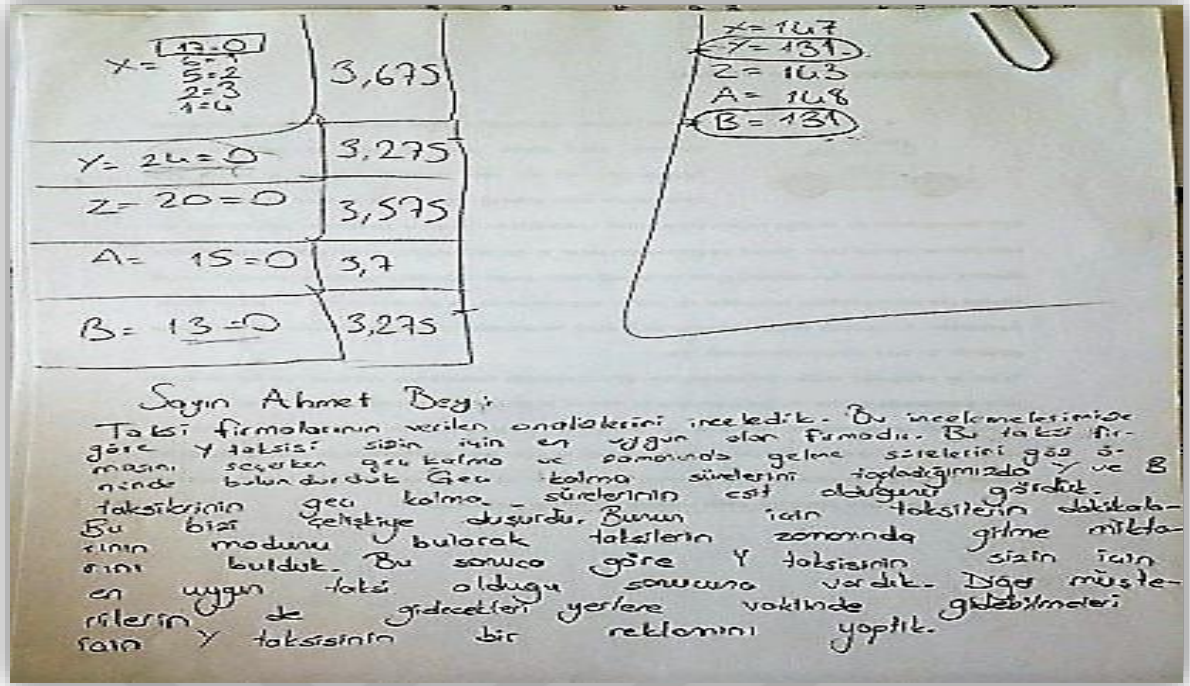 X = 17=0
5=1
5=2
2=3
1=4
3,675
Y= 24=0
3,275
Z= 20=0
3,575
A= 15=0
3,7
B= 13=0
3,275
X= 147
Y= 131
Z= 143
A= 148
B= 131
Sayın Ahmet Bey;
Taksi firmalarının verilen analizlerini inceledik. Bu incelemelerimize
göre Y taksisi sizin için en uygun olan firmadır. Bu taksi fir-
masını seçerken geç kalma ve zamanında gelme sürelerini göz ö-
nünde bulundurduk. Geç kalma sürelerini topladığımızda Y ve B
taksilerinin geç kalma sürelerinin eşit olduğunu gördük.
Bu bizi çelişkiye düşürdü. Bunun için taksilerin dakikala-
rının modunu bularak taksilerin zamanında gitme mikta-
rını bulduk. Bu sonuca göre Y taksisinin sizin için
en uygun taksi olduğu sonucuna vardık. Diğer müşte-
rilerin de gidecekleri yerlere vaktinde gidebilmeleri
için Y taksisinin bir reklamını yaptık.